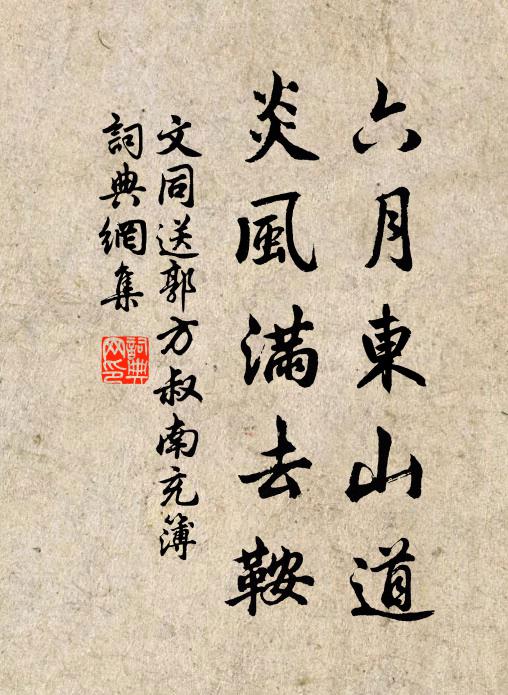 六月東山道
炎風滿去鞍
文同送郭方叔南充簿
詞典網集
詞典網印